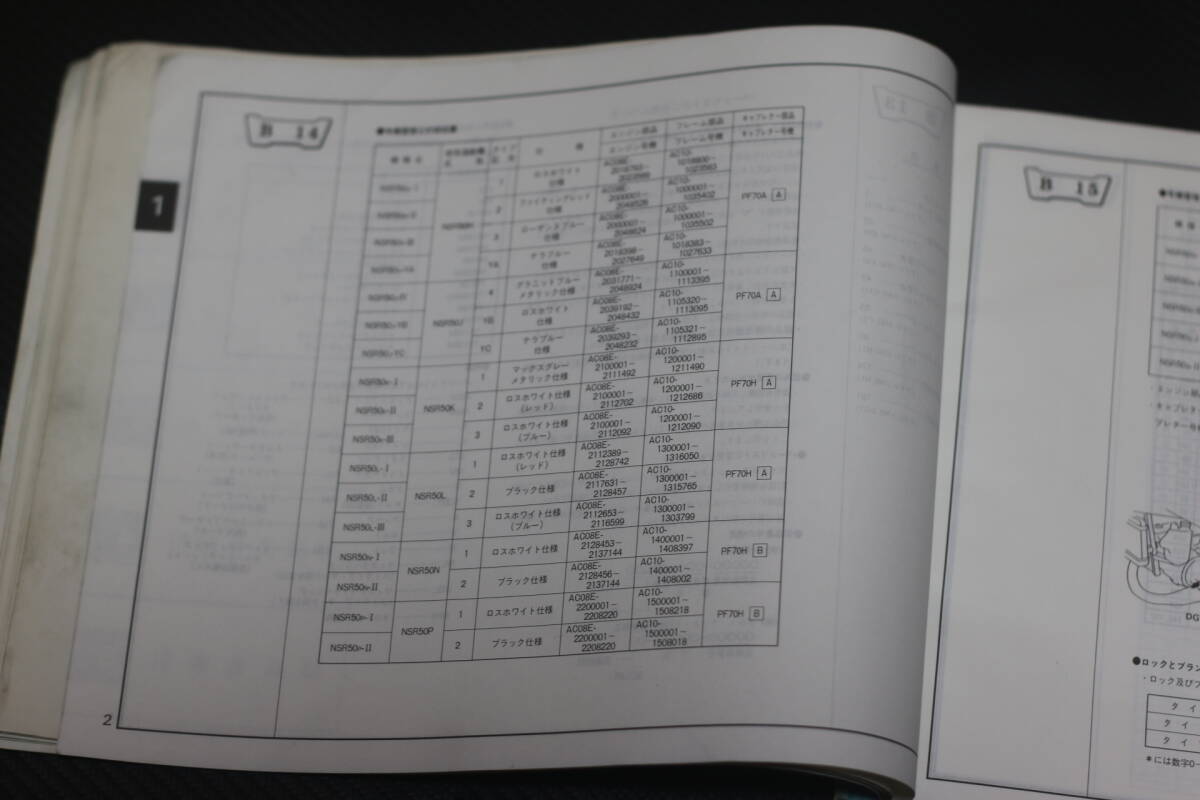 B 14
1
エンジン部品 フレーム部品 キャブレター部品
エンジン号機 フレーム号機 キャブレター号機
1 ロスホワイト仕様 AC08E- AC10-
2 ファイティングレッド仕様 AC08E- 2000001~ AC10- 1000001~ 1035402 PF70A A
3 ローザンヌブルー仕様 AC08E- 2000001~ 2048624 AC10- 1000001~ 1035502
YA テラブルー仕様 AC08E- 2018398~ 2027649 AC10- 1018383~ 1027633
NSR50J 4 グラニットブルーメタリック仕様 AC08E- 2031771~ 2048924 AC10- 1100001~ 1113395
YB ロスホワイト仕様 AC08E- 2039192~ 2048432 AC10- 1105320~ 1113095 PF70A A
YC テラブルー仕様 AC08E- 2039293~ 2048232 AC10- 1105321~ 1112895
NSR50K-I NSR50K 1 マックスグレーメタリック仕様 AC08E- 2100001~ 2111492 AC10- 1200001~ 1211490
NSR50K-II 2 ロスホワイト仕様(レッド) AC08E- 2100001~ 2112702 AC10- 1200001~ 1212686 PF70H A
NSR50K-III 3 ロスホワイト仕様(ブルー) AC08E- 2100001~ 2112092 AC10- 1200001~ 1212090
NSR50L-I NSR50L 1 ロスホワイト仕様(レッド) AC08E- 2112389~ 2128742 AC10- 1300001~ 1316050
NSR50L-II 2 ブラック仕様 AC08E- 2117631~ 2128457 AC10- 1300001~ 1315765 PF70H A
NSR50L-III 3 ロスホワイト仕様(ブルー) AC08E- 2112653~ 2116599 AC10- 1300001~ 1303799
NSR50N-I NSR50N 1 ロスホワイト仕様 AC08E- 2128453~ 2137144 AC10- 1400001~ 1408397 PF70H B
NSR50N-II 2 ブラック仕様 AC08E- 2128456~ 2137144 AC10- 1400001~ 1408002
NSR50P-I NSR50P 1 ロスホワイト仕様 AC08E- 2200001~ 2208220 AC10- 1500001~ 1508218 PF70H B
NSR50P-II 2 ブラック仕様 AC08E- 2200001~ 2208220 AC10- 1500001~ 1508018
2
B 15
・エンジン部品
・キャブレ
ブレター号
DG
●ロックとブラン
・ロック及びブ
タ イ
タ イ
タ イ
*には数字0~